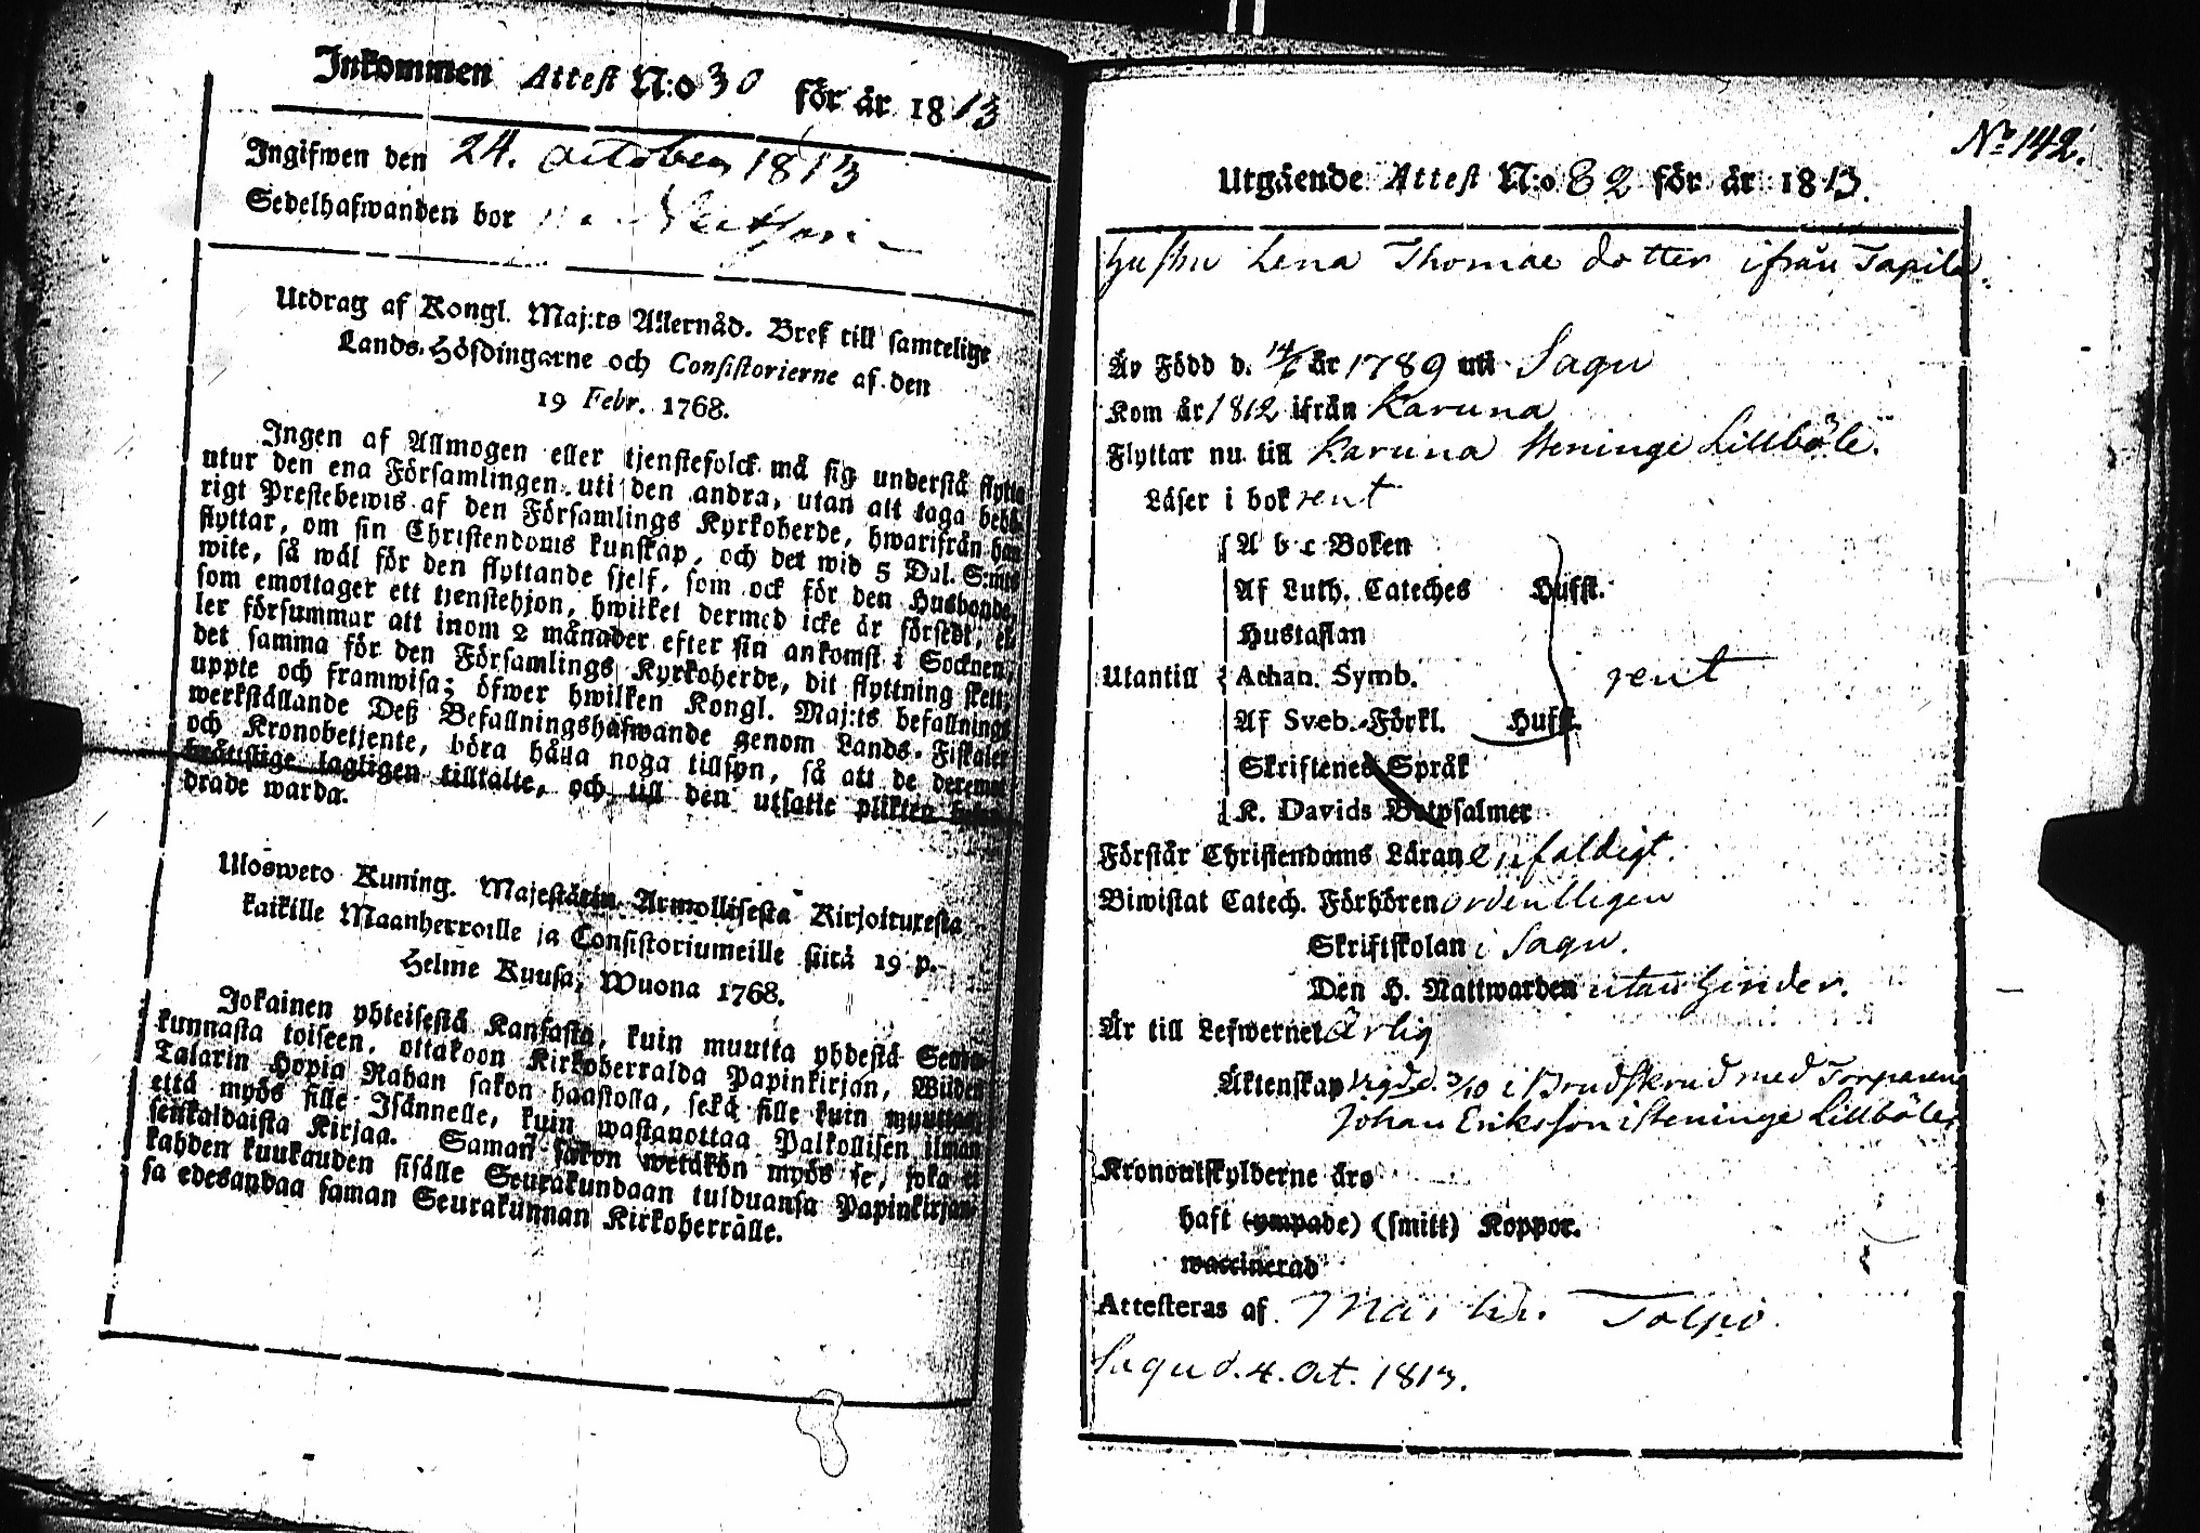 Inkommen Attest N:o 30 för år 1813
Ingifwen den 24. october 1813
Sedelhafwanden bor
Utdrag af Kongl. Maj:ts Allernåd. Bref till samtelige
Lands-Höfdingarne och Consistorierne af den
19 Febr. 1768.
Ingen af Allmogen eller tjenstefolck må sig understå flytta
utur den ena Församlingen uti den andra, utan att taga behö-
rigt Prestebewis af den Församlings Kyrkoherde, hwarifrån han
flyttar, om sin Christendoms kunskap, och det wid 5 Dal. S:mts
wite, så wäl för den flyttande sjelf, som ock för den Husbonde,
som emottager ett tjenstehjon, hwilket dermed icke är försedt, el-
ler försummar att inom 2 månader efter sin ankomst i Socknen,
det samma för den Församlings Kyrkoherde, dit flyttning skett,
uppte och framwisa; öfwer hwilken Kongl. Maj:ts befallnings
werkställande Deß Befallningshafwande genom Lands-Fiskaler
och Kronobetjente, böra hålla noga tillsyn, så att de deremot
bråttslige lagligen tilltalte, och till den utsatte plikten
drade warda.
Ulosweto Kuning. Majestätin Armollisesta Kirjoituxesta
kaikille Maanherroille ja Consistoriumeille siitä 19 p.
Helme Kuusa, Wuona 1768.
Jokainen yhteisestä Kansasta, kuin muutta yhdestä Seura-
kunnasta toiseen, ottakoon Kirkoherralda Papinkirjan, Wiiden
Talarin Hopia Rahan sakon haastolla, sekä sille kuin muuttaa
että myös sille Isännelle, kuin wastanottaa Palkollisen ilman
senkaldaista Kirjaa. Saman sakon wetäkön myös se, joka ei
kahden kuukauden sisälle Seurakundaan tulduansa Papinkirjan-
sa edesandaa saman Seurakunnan Kirkoherralle.
No 142.
Utgående Attest N:o 82 för år 1813.
Hustru Lena Thomae dotter ifrån Tapila.
Är Född d. 14/6 år 1789 uti Sagu
Kom år 1812 ifrån Karuna
Flyttar nu till Karuna Steninge Lillböle.
Läser i bok rent
A b c Boken
Af Luth. Cateches Hufst.
Hustaflan
Utantill Athan. Symb. rent
Af Sveb. Förkl. Hufst.
Skriftenes Språk
K. Davids Botpsalmer
Förstår Christendoms Läran enfaldigt.
Biwistat Catech. Förhören ordentligen
Skriftskolan i Sagu.
Den H. Nattwarden utan hinder.
Är till Lefwernet ärlig
Äktenskap Vigd d. 3/10 i Brudskrud med Torparen
Johan Eriksson i Steninge Lillböle.
Kronoutskylderne äro
haft (ympade) (smitt) Koppor.
waccinerad
Attesteras af Martin Tolpo.
Sagu d. 4. Oct. 1813.